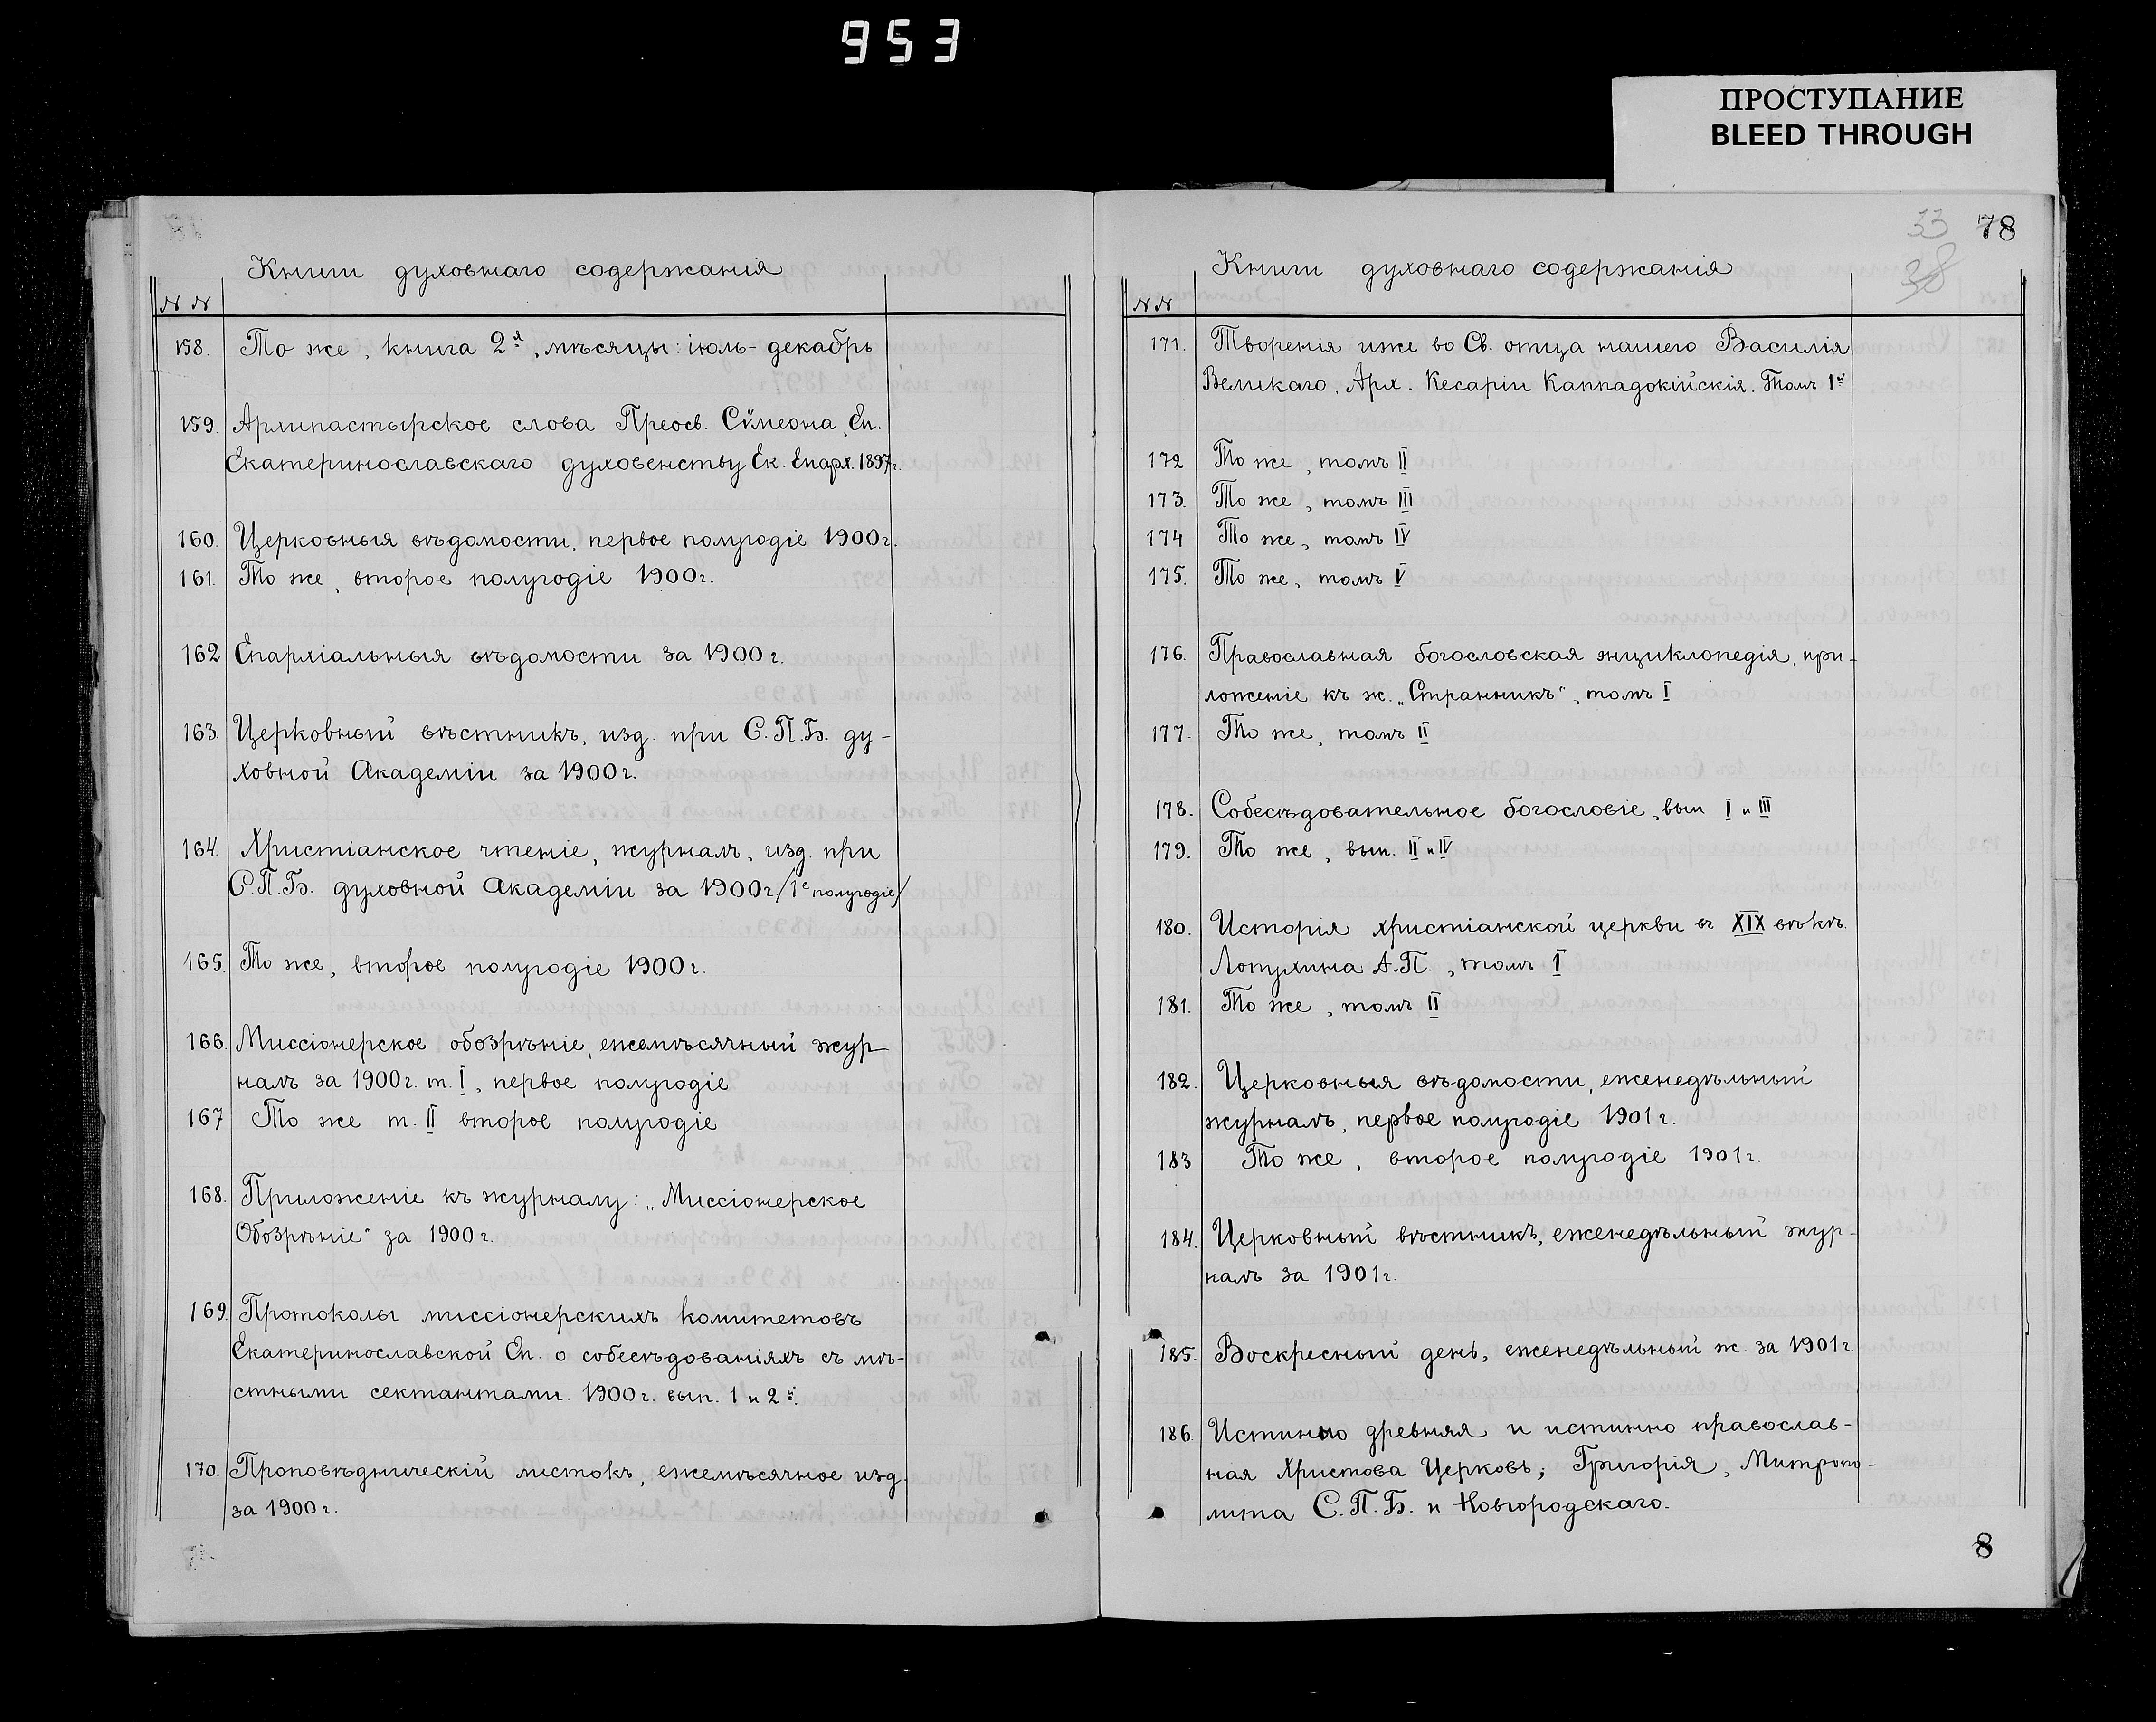 953
ПРОСТУПАНИЕ
BLEED THROUGH
Книги духовнаго содержанія
№ №
158. То же, книга 2я, мѣсяцы: іюль - декабрь
159. Архипастырское слова Преосв. Сѵмеона, Еп.
Екатеринославскаго духовенству Ек. Епарх. 1897г.
160. Церковныя вѣдомости, первое полугодіе 1900г.
161. То же, второе полугодіе 1900г.
162 Епархіальныя вѣдомости за 1900г.
163. Церковный вѣстникъ, изд. при С.П.Б. ду-
ховной Академіи за 1900г.
164. Христіанское чтеніе, журналъ, изд. при
С.П.Б. духовной Академіи за 1900г. /1е полугодіе/
165. То же, второе полугодіе 1900г.
166. Миссіонерское обозрѣніе, ежемѣсячный жур
налъ за 1900г. т. I, первое полугодіе
167 То же т. II второе полугодіе
168. Приложеніе къ журналу: „Миссіонерское
Обозрѣніе" за 1900г.
169. Протоколы миссіонерскихъ комитетовъ
Екатеринославской Еп. о собесѣдованіяхъ съ мѣ-
стными сектантами. 1900г. вып. 1 и 2й.
170. Проповѣдническій листокъ, ежемѣсячное изд.
за 1900г.
33 78
38
Книги духовнаго содержанія
№ №
171. Творенія иже во Св. отца нашего Василія
Великаго, Арх. Кесаріи Каппадокійскія. Томъ 1й
172 То же, томъ II
173. То же, томъ III
174 То же, томъ IV
175. То же, томъ V
176. Православная богословская энциклопедія, при-
ложеніе къ ж. „Странникъ", томъ I
177. То же, томъ II
178. Собесѣдовательное богословіе, вып I и III
179. То же, вып. II и IV
180. Исторія христіанской церкви въ XIX вѣкѣ.
Лопухина А.П., томъ I
181. То же, томъ II
182. Церковныя вѣдомости, еженедѣльный
журналъ, первое полугодіе 1901г.
183 То же, второе полугодіе 1901г.
184. Церковный вѣстникъ, еженедѣльный жур-
налъ за 1901г.
185. Воскресный день, еженедѣльный ж. за 1901г.
186. Истинно древняя и истинно православ-
ная Христова Церковь; Григорія, Митропо-
лита С.П.Б. и Новгородскаго.
8